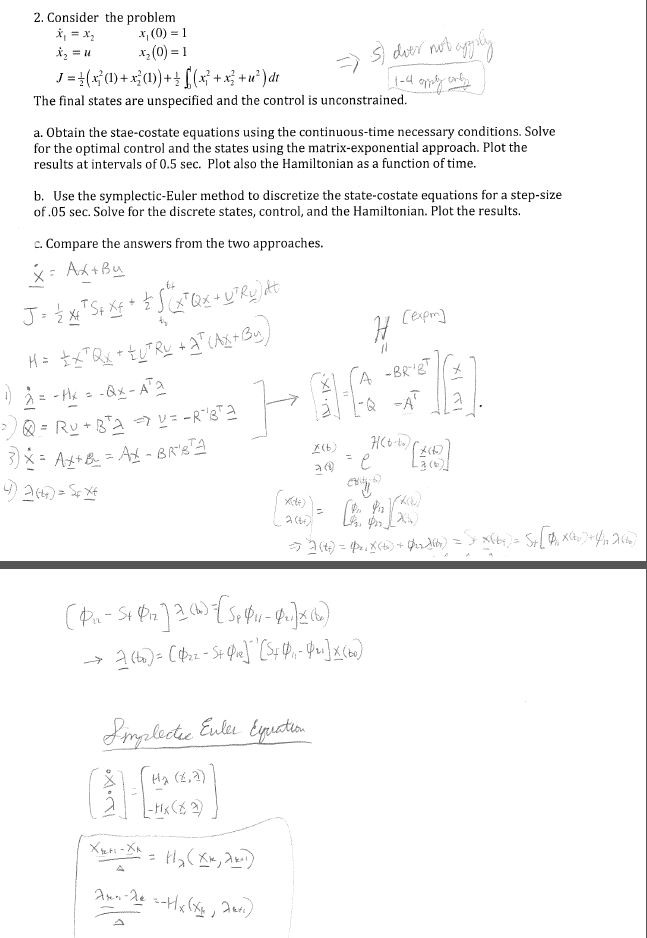 2. Consider the problem
ẋ₁ = x₂ x₁(0) = 1
ẋ₂ = u x₂(0) = 1
J = ½(x₁²(1) + x₂²(1)) + ½ ∫₀¹(x₁² + x₂² + u²) dt
⇒ 5) does not apply
1-4 apply only
The final states are unspecified and the control is unconstrained.
a. Obtain the stae-costate equations using the continuous-time necessary conditions. Solve
for the optimal control and the states using the matrix-exponential approach. Plot the
results at intervals of 0.5 sec. Plot also the Hamiltonian as a function of time.
b. Use the symplectic-Euler method to discretize the state-costate equations for a step-size
of .05 sec. Solve for the discrete states, control, and the Hamiltonian. Plot the results.
c. Compare the answers from the two approaches.
ẋ = Ax + Bu
J = ½ xfᵀ Sf xf + ½ ∫t₀^tf (xᵀQx + uᵀRu) dt
H = ½xᵀQx + ½uᵀRu + λᵀ(Ax + Bu)
H [expm]
1) λ̇ = -Hx = -Qx - Aᵀλ
2) 0 = Ru + Bᵀλ ⇒ u = -R⁻¹Bᵀλ
3) ẋ = Ax + Bu = Ax - BR⁻¹Bᵀλ
4) λ(tf) = Sf xf
→ [ẋ λ̇] = [A -BR⁻¹Bᵀ -Q -Aᵀ] [x λ].
x(t) λ(t) = e^H(t-t₀) [x(t₀) λ(t₀)]
[x(tf) λ(tf)] = [φ₁₁ φ₁₂ φ₂₁ φ₂₂] [x(t₀) λ(t₀)]
⇒ λ(tf) = φ₂₁ x(t₀) + φ₂₂ λ(t₀) = Sf x(tf) = Sf [φ₁₁ x(t₀) + φ₁₂ λ(t₀)]
[φ₂₂ - Sf φ₁₂] λ(t₀) = [Sf φ₁₁ - φ₂₁] x(t₀)
→ λ(t₀) = [φ₂₂ - Sf φ₁₂]⁻¹ [Sf φ₁₁ - φ₂₁] x(t₀)
Simplectic Euler Equation
[ẋ λ̇] = [Hλ(x, λ) -Hx(x, λ)]
(xk+1 - xk)/Δ = Hλ(xk, λk+1)
(λk+1 - λk)/Δ = -Hx(xk, λk+1)